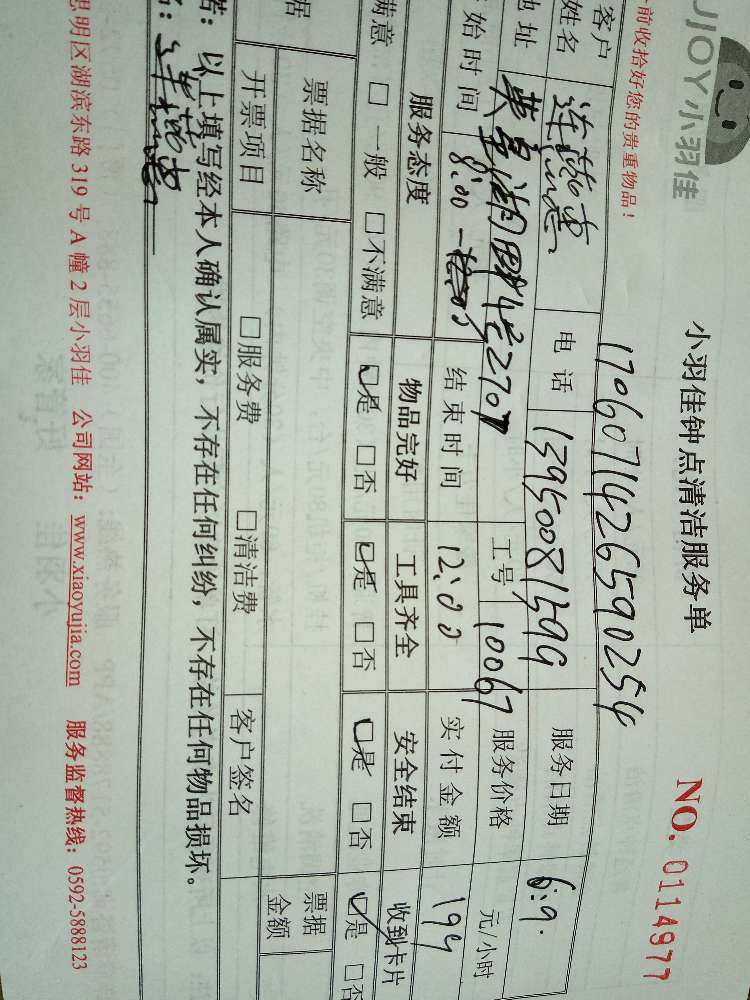 JJOY小羽佳
小羽佳钟点清洁服务单
NO. 0114977
前收拾好您的贵重物品！
1706071426590254
客户姓名 连燕 电话 13950081599 服务日期 6.9.
地址 工号 10067 服务价格 元/小时
始时间 8:00 结束时间 12:00 实付金额 199
服务态度 物品完好 工具齐全 安全结束 收到卡片
满意 □ 一般 □不满意 □是 □否 □是 □否 □是 □否 □是 □否
据 票据名称 票据金额
开票项目 □服务费 □清洁费 客户签名
若：以上填写经本人确认属实，不存在任何纠纷，不存在任何物品损坏。
思明区湖滨东路 319 号 A 幢 2 层小羽佳 公司网站：www.xiaoyujia.com 服务监督热线：0592-5888123